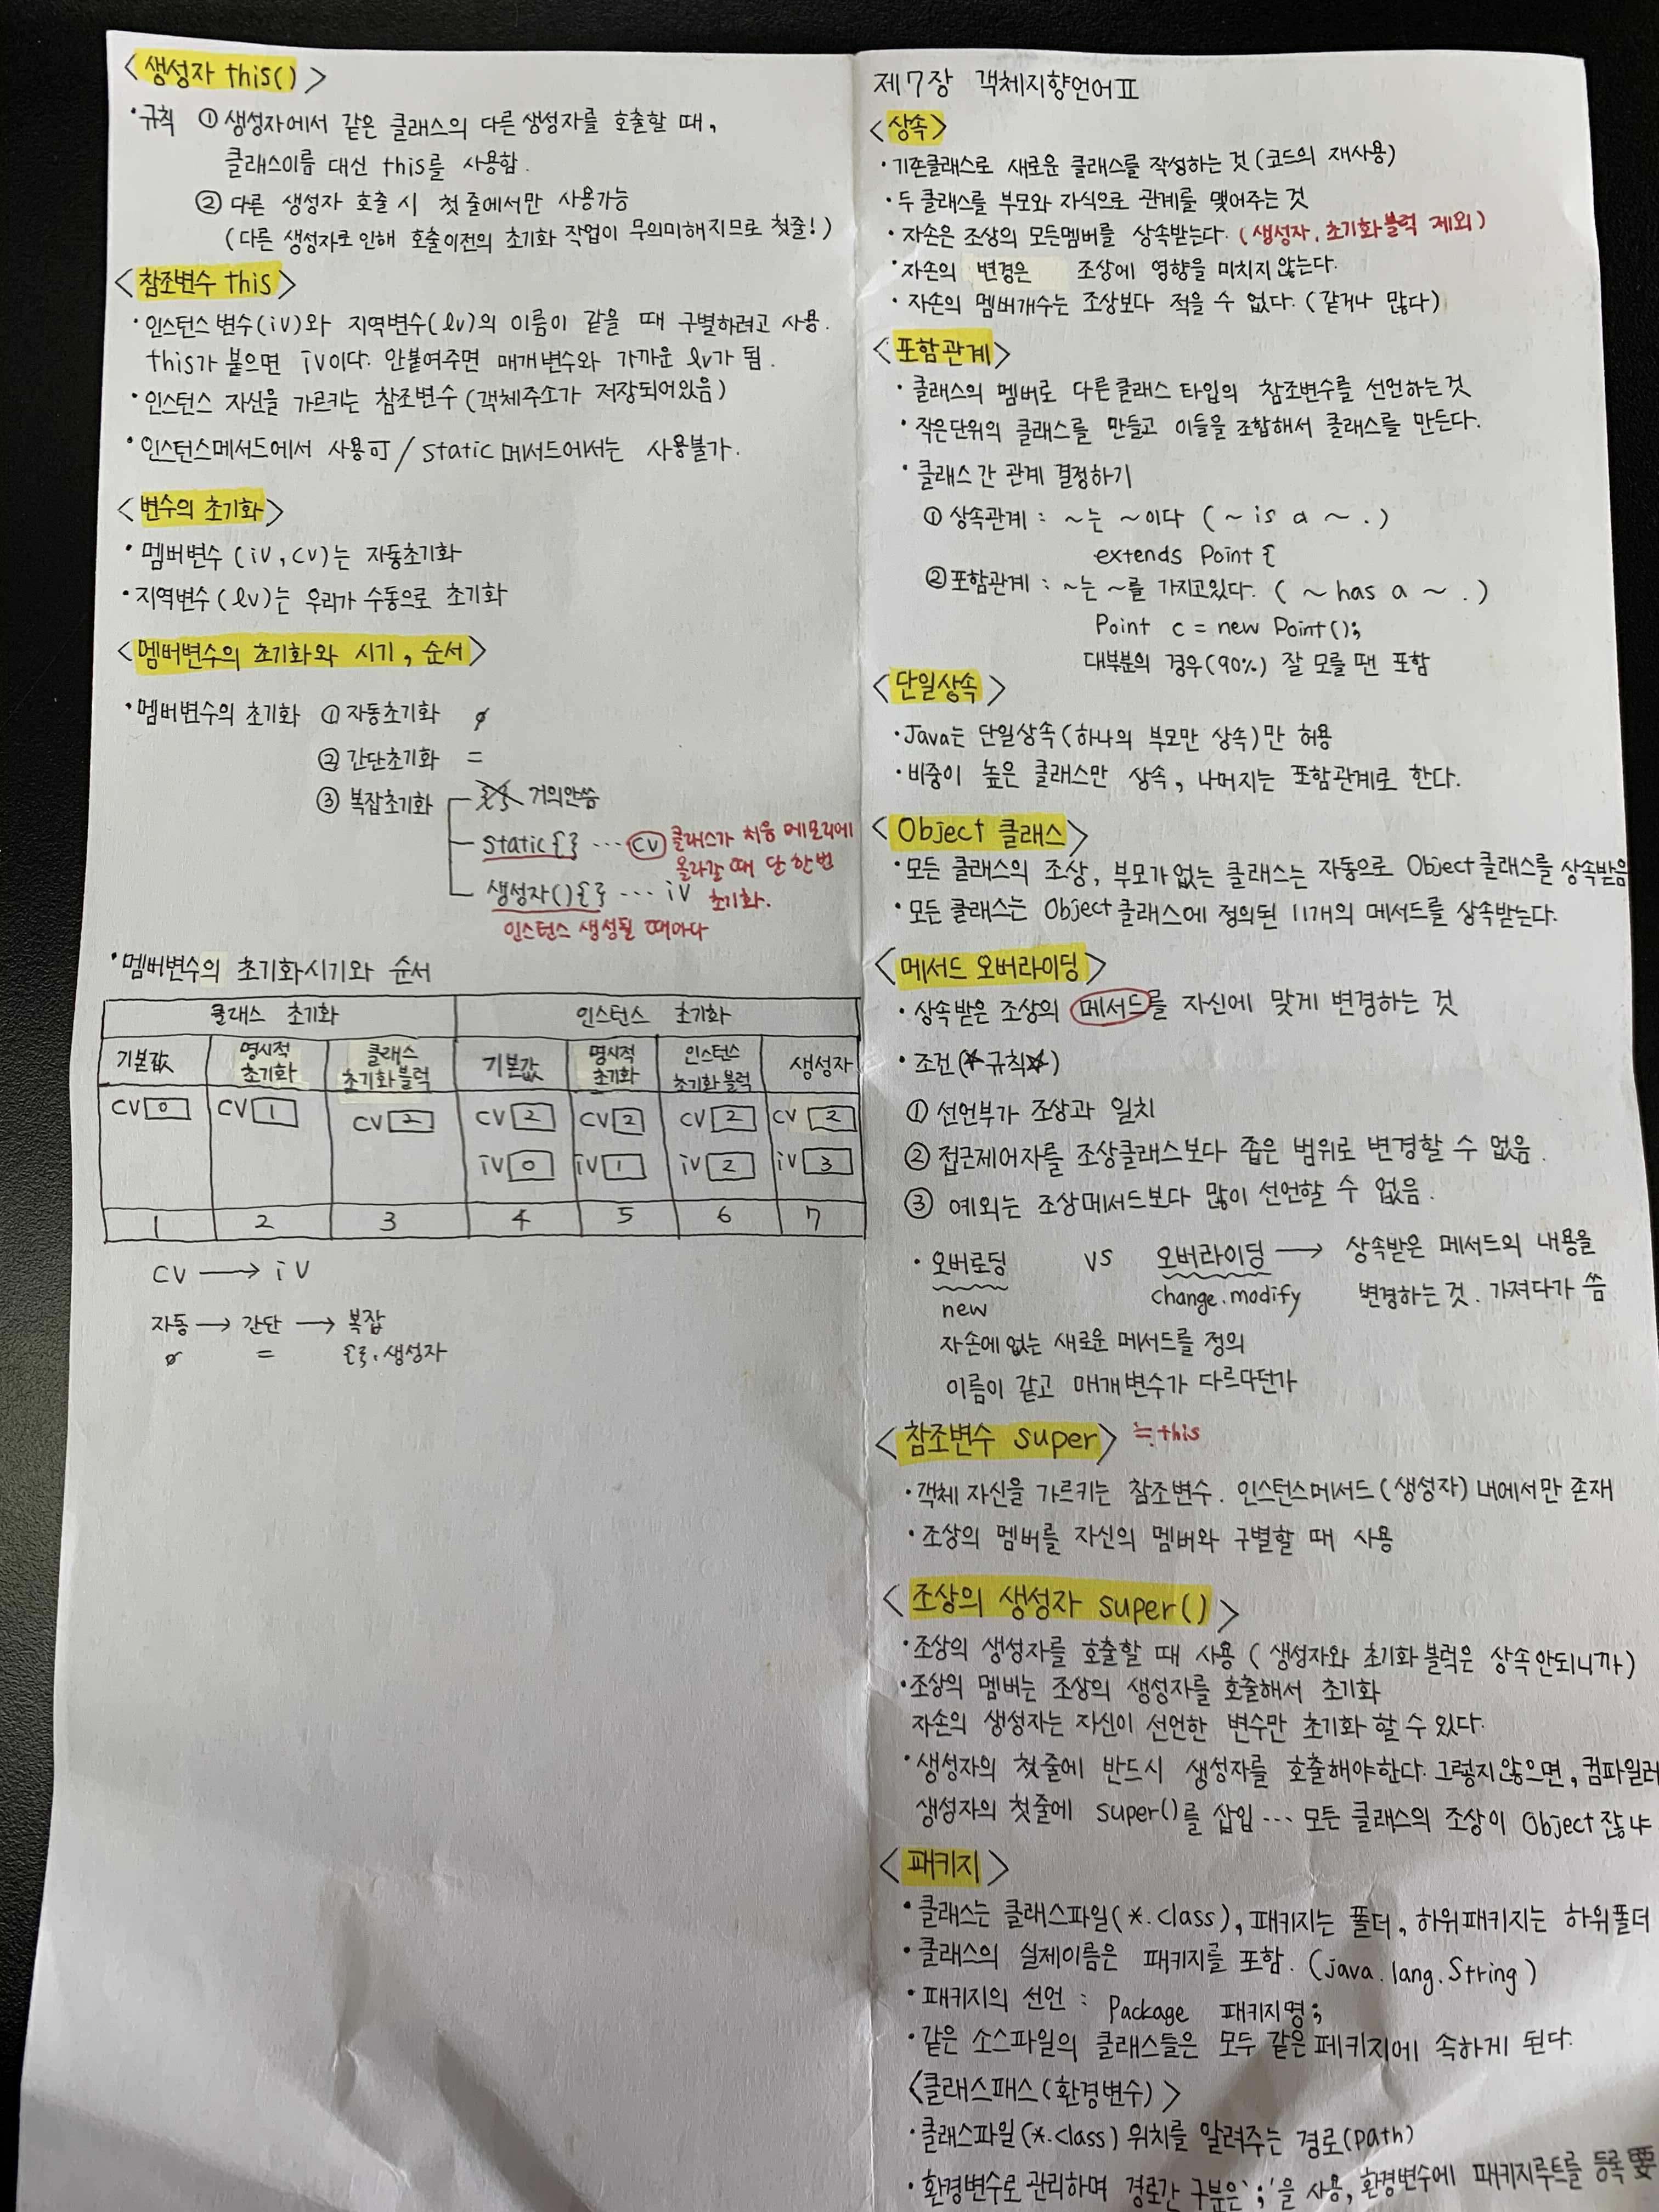 <생성자 this()>
•규칙 ① 생성자에서 같은 클래스의 다른 생성자를 호출할 때,
클래스이름 대신 this를 사용함.
② 다른 생성자 호출 시 첫 줄에서만 사용가능
(다른 생성자로 인해 호출이전의 초기화 작업이 무의미해지므로 첫줄!)
<참조변수 this>
•인스턴스 변수(iv)와 지역변수(lv)의 이름이 같을 때 구별하려고 사용.
this가 붙으면 iv이다. 안붙여주면 매개변수와 가까운 lv가 됨.
•인스턴스 자신을 가르키는 참조변수 (객체주소가 저장되어있음)
•인스턴스메서드에서 사용可 / static 메서드에서는 사용불가.
<변수의 초기화>
• 멤버변수 (iv, cv)는 자동초기화
•지역변수(lv)는 우리가 수동으로 초기화
<멤버변수의 초기화와 시기, 순서>
•멤버변수의 초기화 ① 자동초기화 ∅
② 간단초기화 =
③ 복잡초기화 {} 거의안씀
static{} … cv 클래스가 처음 메모리에
올라갈 때 단 한번
생성자(){} … iv 초기화.
인스턴스 생성될 때마다
•멤버변수의 초기화시기와 순서
클래스 초기화 인스턴스 초기화
기본값 명시적 초기화 클래스 초기화블럭 기본값 명시적 초기화 인스턴스 초기화블럭 생성자
cv 0 cv 1 cv 2 cv 2 cv 2 cv 2 cv 2
iv 0 iv 1 iv 2 iv 3
1 2 3 4 5 6 7
cv → iv
자동 → 간단 → 복잡
∅ = {}, 생성자
제7장 객체지향언어Ⅱ
<상속>
•기존클래스로 새로운 클래스를 작성하는 것 (코드의 재사용)
•두 클래스를 부모와 자식으로 관계를 맺어주는 것
•자손은 조상의 모든멤버를 상속받는다. (생성자, 초기화블럭 제외)
•자손의 변경은 조상에 영향을 미치지 않는다.
•자손의 멤버개수는 조상보다 적을 수 없다. (같거나 많다)
<포함관계>
•클래스의 멤버로 다른클래스 타입의 참조변수를 선언하는 것
•작은단위의 클래스를 만들고 이들을 조합해서 클래스를 만든다.
•클래스 간 관계 결정하기
① 상속관계 : ~는 ~이다 (~ is a ~ .)
extends Point {
② 포함관계 : ~는 ~를 가지고있다. (~ has a ~ .)
Point c = new Point();
대부분의 경우(90%) 잘 모를 땐 포함
<단일상속>
•Java는 단일상속(하나의 부모만 상속)만 허용
•비중이 높은 클래스만 상속, 나머지는 포함관계로 한다.
<Object 클래스>
•모든 클래스의 조상, 부모가 없는 클래스는 자동으로 Object클래스를 상속받음
•모든 클래스는 Object클래스에 정의된 11개의 메서드를 상속받는다.
<메서드 오버라이딩>
•상속받은 조상의 메서드를 자신에 맞게 변경하는 것
•조건(☆규칙☆)
① 선언부가 조상과 일치
② 접근제어자를 조상클래스보다 좁은 범위로 변경할 수 없음.
③ 예외는 조상메서드보다 많이 선언할 수 없음.
•오버로딩 VS 오버라이딩 → 상속받은 메서드의 내용을
new change.modify 변경하는 것. 가져다가 씀
자손에 없는 새로운 메서드를 정의
이름이 같고 매개변수가 다르다던가
<참조변수 super> ≒this
•객체 자신을 가르키는 참조변수. 인스턴스메서드(생성자) 내에서만 존재
•조상의 멤버를 자신의 멤버와 구별할 때 사용
<조상의 생성자 super()>
•조상의 생성자를 호출할 때 사용 (생성자와 초기화블럭은 상속안되니까)
•조상의 멤버는 조상의 생성자를 호출해서 초기화
자손의 생성자는 자신이 선언한 변수만 초기화 할 수 있다.
•생성자의 첫줄에 반드시 생성자를 호출해야한다. 그렇지않으면, 컴파일러
생성자의 첫줄에 super()를 삽입… 모든 클래스의 조상이 Object잖냐
<패키지>
•클래스는 클래스파일(*.class), 패키지는 폴더, 하위패키지는 하위폴더
•클래스의 실제이름은 패키지를 포함. (java.lang.String)
•패키지의 선언 : Package 패키지명;
•같은 소스파일의 클래스들은 모두 같은 페키지에 속하게 된다.
<클래스패스(환경변수)>
•클래스파일(*.class) 위치를 알려주는 경로(path)
•환경변수로 관리하며 경로간 구분은 ';'을 사용, 환경변수에 패키지루트를 등록 要